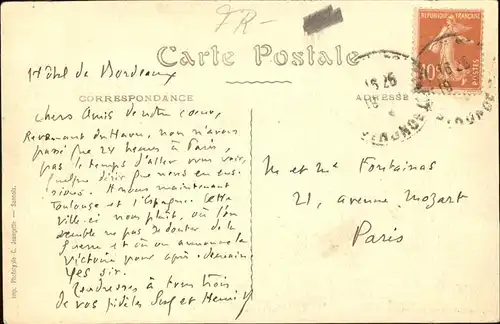 FR-
Carte Postale
CORRESPONDANCE
ADRESSE
REPUBLIQUE FRANÇAISE
40c
POSTES
Hôtel de Bordeaux
chers Amis de notre cœur,
Revenant du Havre, nous n'avons
passé que 24 heures à Paris,
pas le temps d'aller vous voir,
quelque désir que nous en eus-
sions. A nous maintenant
Toulouse et l'Espagne. Cette
ville-ci nous plaît, où l'on
semble ne pas se douter de la
Guerre et où on annonce la
Victoire pour après-demain.
Yes sir.
Tendresses à tous trois
de vos fidèles Serf et Henry
M et Me Fontainas
21, avenue Mozart
Paris
Imp. Phototypie